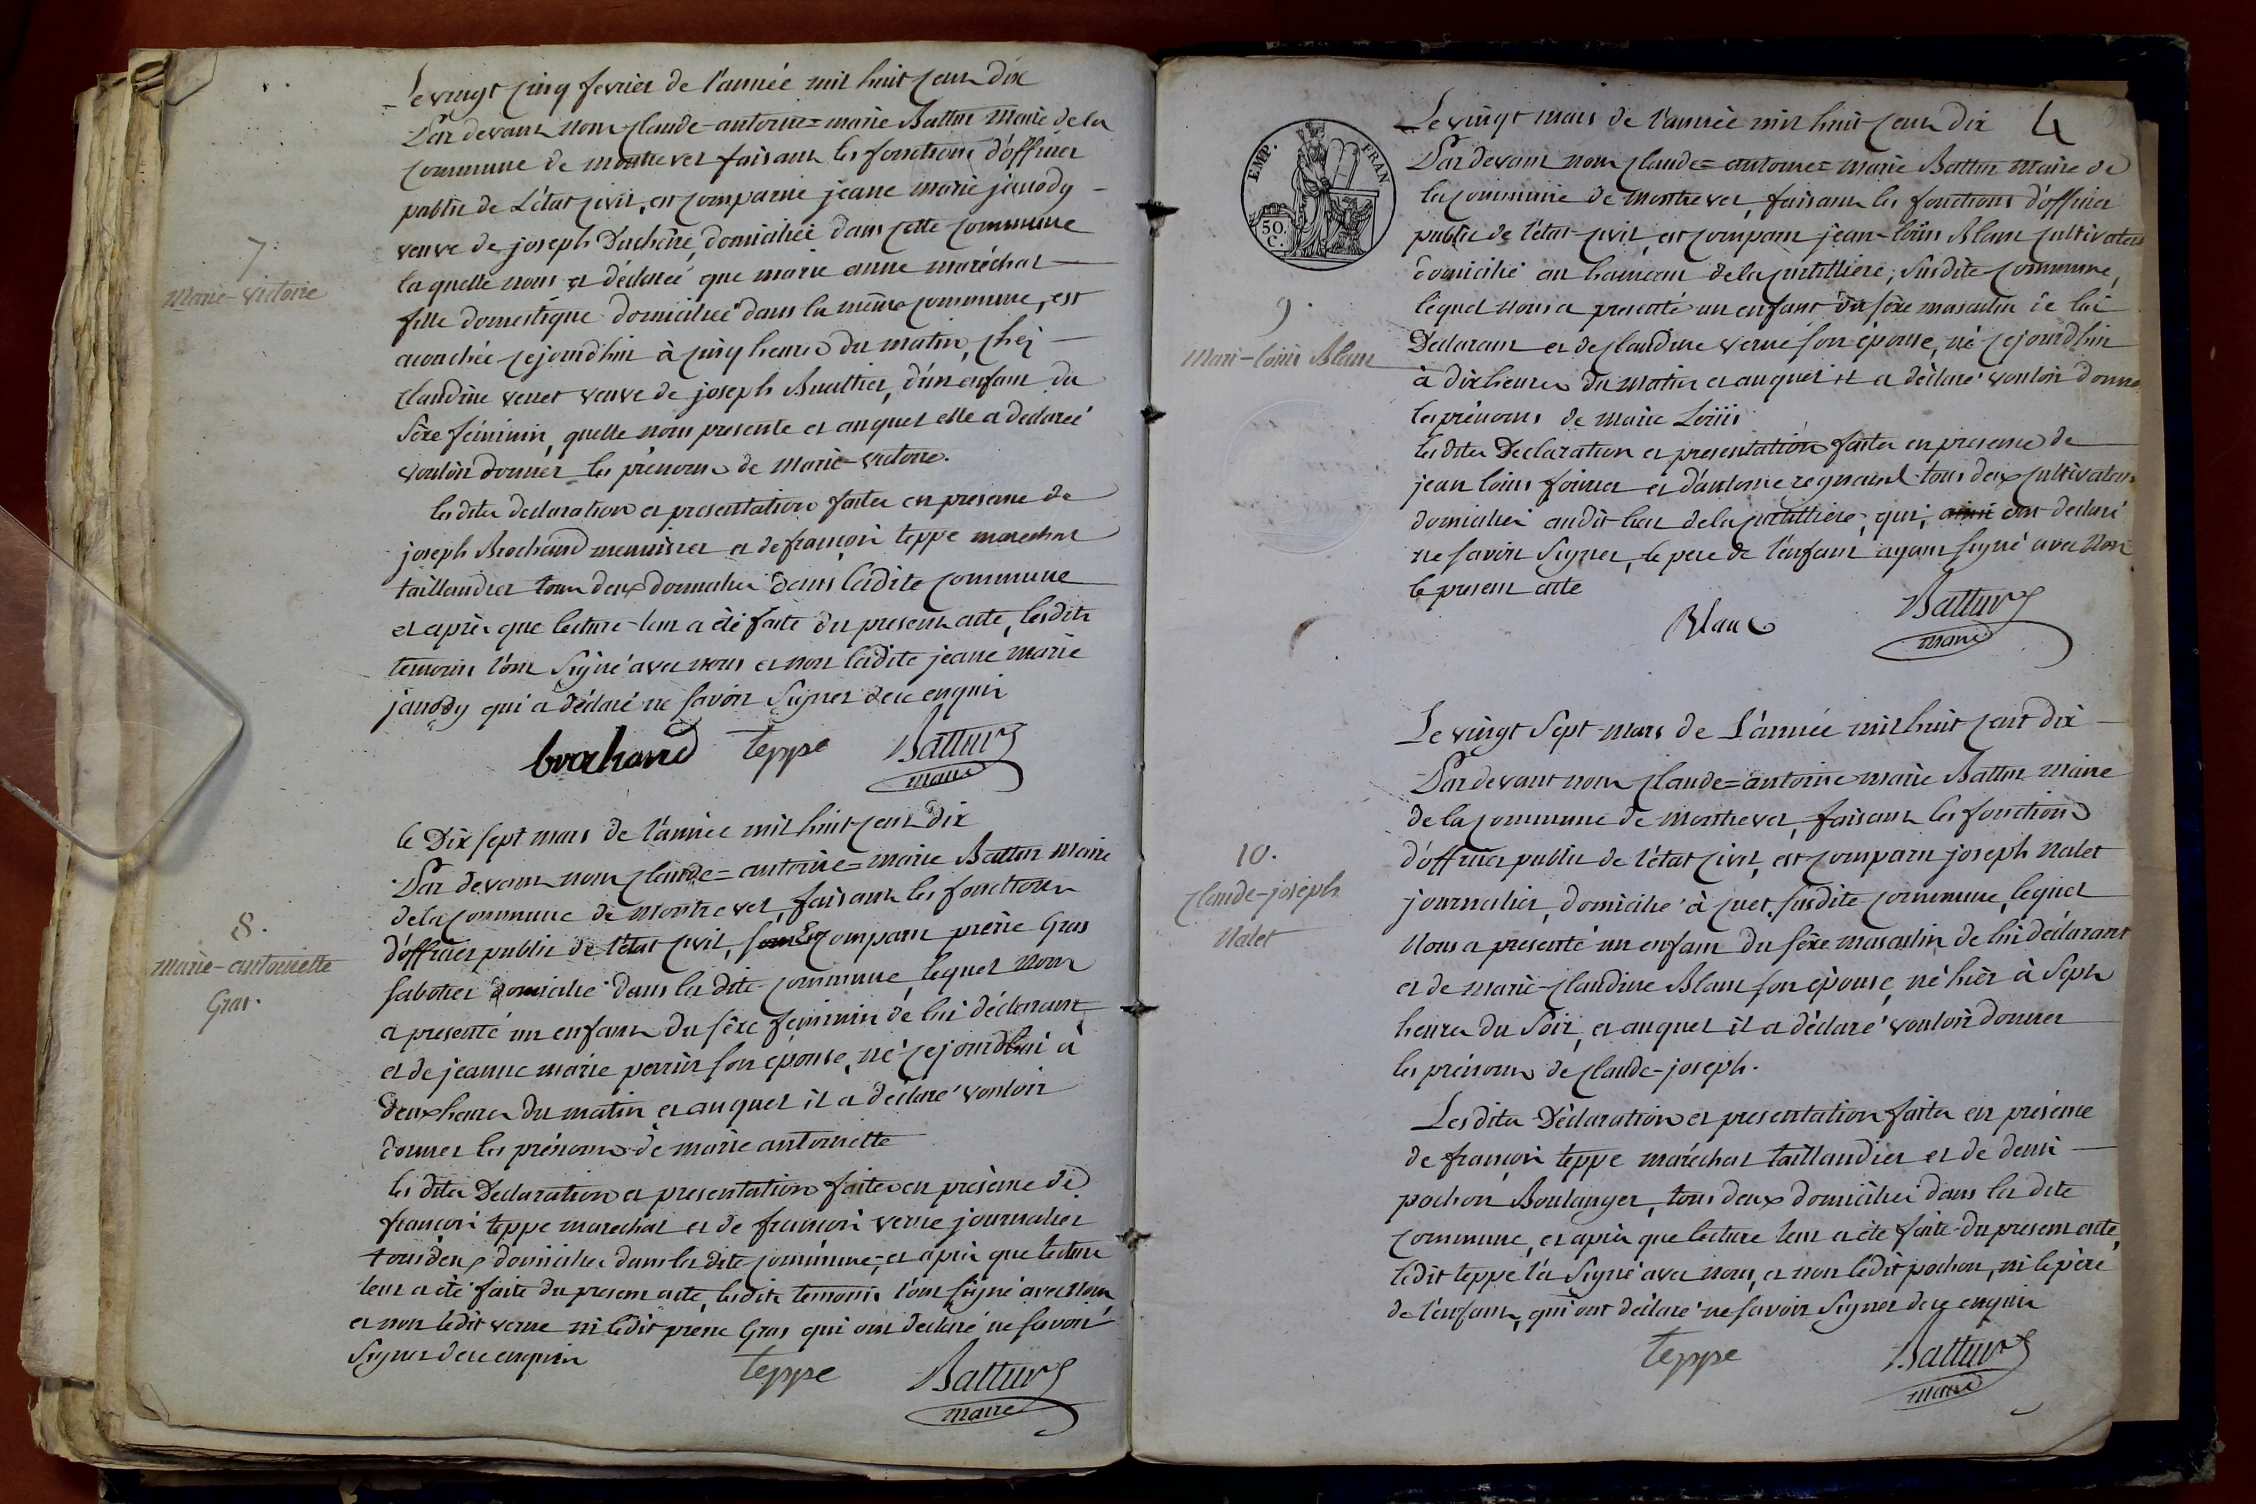 Le vingt cinq fevrier de l'année mil huit cent dix
Par devant nous claude=antoine=marie Battur Maire de la
commune de montrevel faisant les fonctions d'officier
public de L'état civil, est comparüe jeane marie janody
veuve de joseph Duchêne, domiciliée dans cette commune
7.
Marie-victoire
la quelle nous a déclarée que marie anne maréchal
fille domestique domiciliée dans la même commune, est
acouchée cejourd'hui à cinq heures du matin, chez
claudine veuve de joseph Buattier, d'un enfant du
sèxe féminin, quelle nous presente et auquel elle a declareé
vouloir donner les prénoms de marie-victoire.
lesdites declaration et presentation faites en presence de
joseph Brochand menuisier et de françois teppe marechal
taillandier tous deux domiciliés dans ladite commune
et après que lecture leur a été faite du present acte, lesdits
temoins l'ont signé avec nous et non ladite jeane marie
janody qui a déclaré ne savoir signer de ce enquis
brochand teppe Battur
maire
le Dix sept mars de l'année mil huit cent dix
Par devant nous claude=antoine=marie Battur Maire
de la commune de montrevel, faisant les fonctions
8.
Marie-antoinette
Gras.
d'officier public de l'état civil, est comparu pierre Gras
sabotier domicilié dans la dite commune, lequel nous
a presenté un enfant du sèxe feminin de lui déclarant
et de jeanne marie perrin son épouse, né cejourd'hui à
deux heures du matin et auquel il a déclaré vouloir
donner les prénoms de marie antoinette
les dites Declaration et presentation faites en présence de
françois teppe marechal et de françois verne journalier
tous deux domiciliés dans la dite commune, et après que lecture
leur a été faite du present acte, lesdits temoins l'ont signé avec nous
et non ledit verne ni ledit pierre Gras qui ont declaré ne savoir
signer de ce enquis
teppe Battur
maire
4
Le vingt mars de l'année mil huit cent dix
EMP. FRAN.
50.
C.
Par devant nous claude=antoine=marie Battur Maire de
la commune de montrevel, faisant les fonctions d'officier
public de l'état civil, est comparu jean-loüis Blanc cultivateur
domicilié au hameau de la susdite commune,
9.
Marie-loüis Blanc
lequel nous a presenté un enfant du sèxe masculin de lui
Déclarant et de claudine verne son épouse, né cejourd'hui
à dix heures du matin et auquel il a déclaré vouloir donner
les prénoms de marie Loüis
les dites Declaration et presentation faites en presence de
jean loüis et d'antoine tous deux cultivateurs
domiciliés audit lieu de la qui, ont declaré
ne savoir signer, le pere de l'enfant ayant signé avec Nous
le present acte
Blanc Battur
maire
Le vingt sept mars de L'année mil huit cent dix
Par devant nous claude=antoine marie Battur Maire
de la commune de montrevel, faisant les fonctions
10.
claude-joseph
Nalet
d'officier public de l'état civil, est comparu joseph Nalet
journalier, domicilié à cuet susdite commune, lequel
Nous a presenté un enfant du sèxe masculin, de lui déclarant
et de marie-claudine Blanc son épouse, né hier à sept
heures du soir, et auquel il a déclaré vouloir donner
les prénoms de claude-joseph.
Lesdites Déclaration et presentation faites en présence
de françois teppe maréchal taillandier et de denis
pochon Boulanger, tous deux domiciliés dans la dite
commune, et après que lecture leur a été faite du present acte,
ledit teppe l'a signé avec nous, et non ledit pochon, ni le père
de l'enfant, qui ont déclaré ne savoir signer de ce enquis
teppe Battur
maire